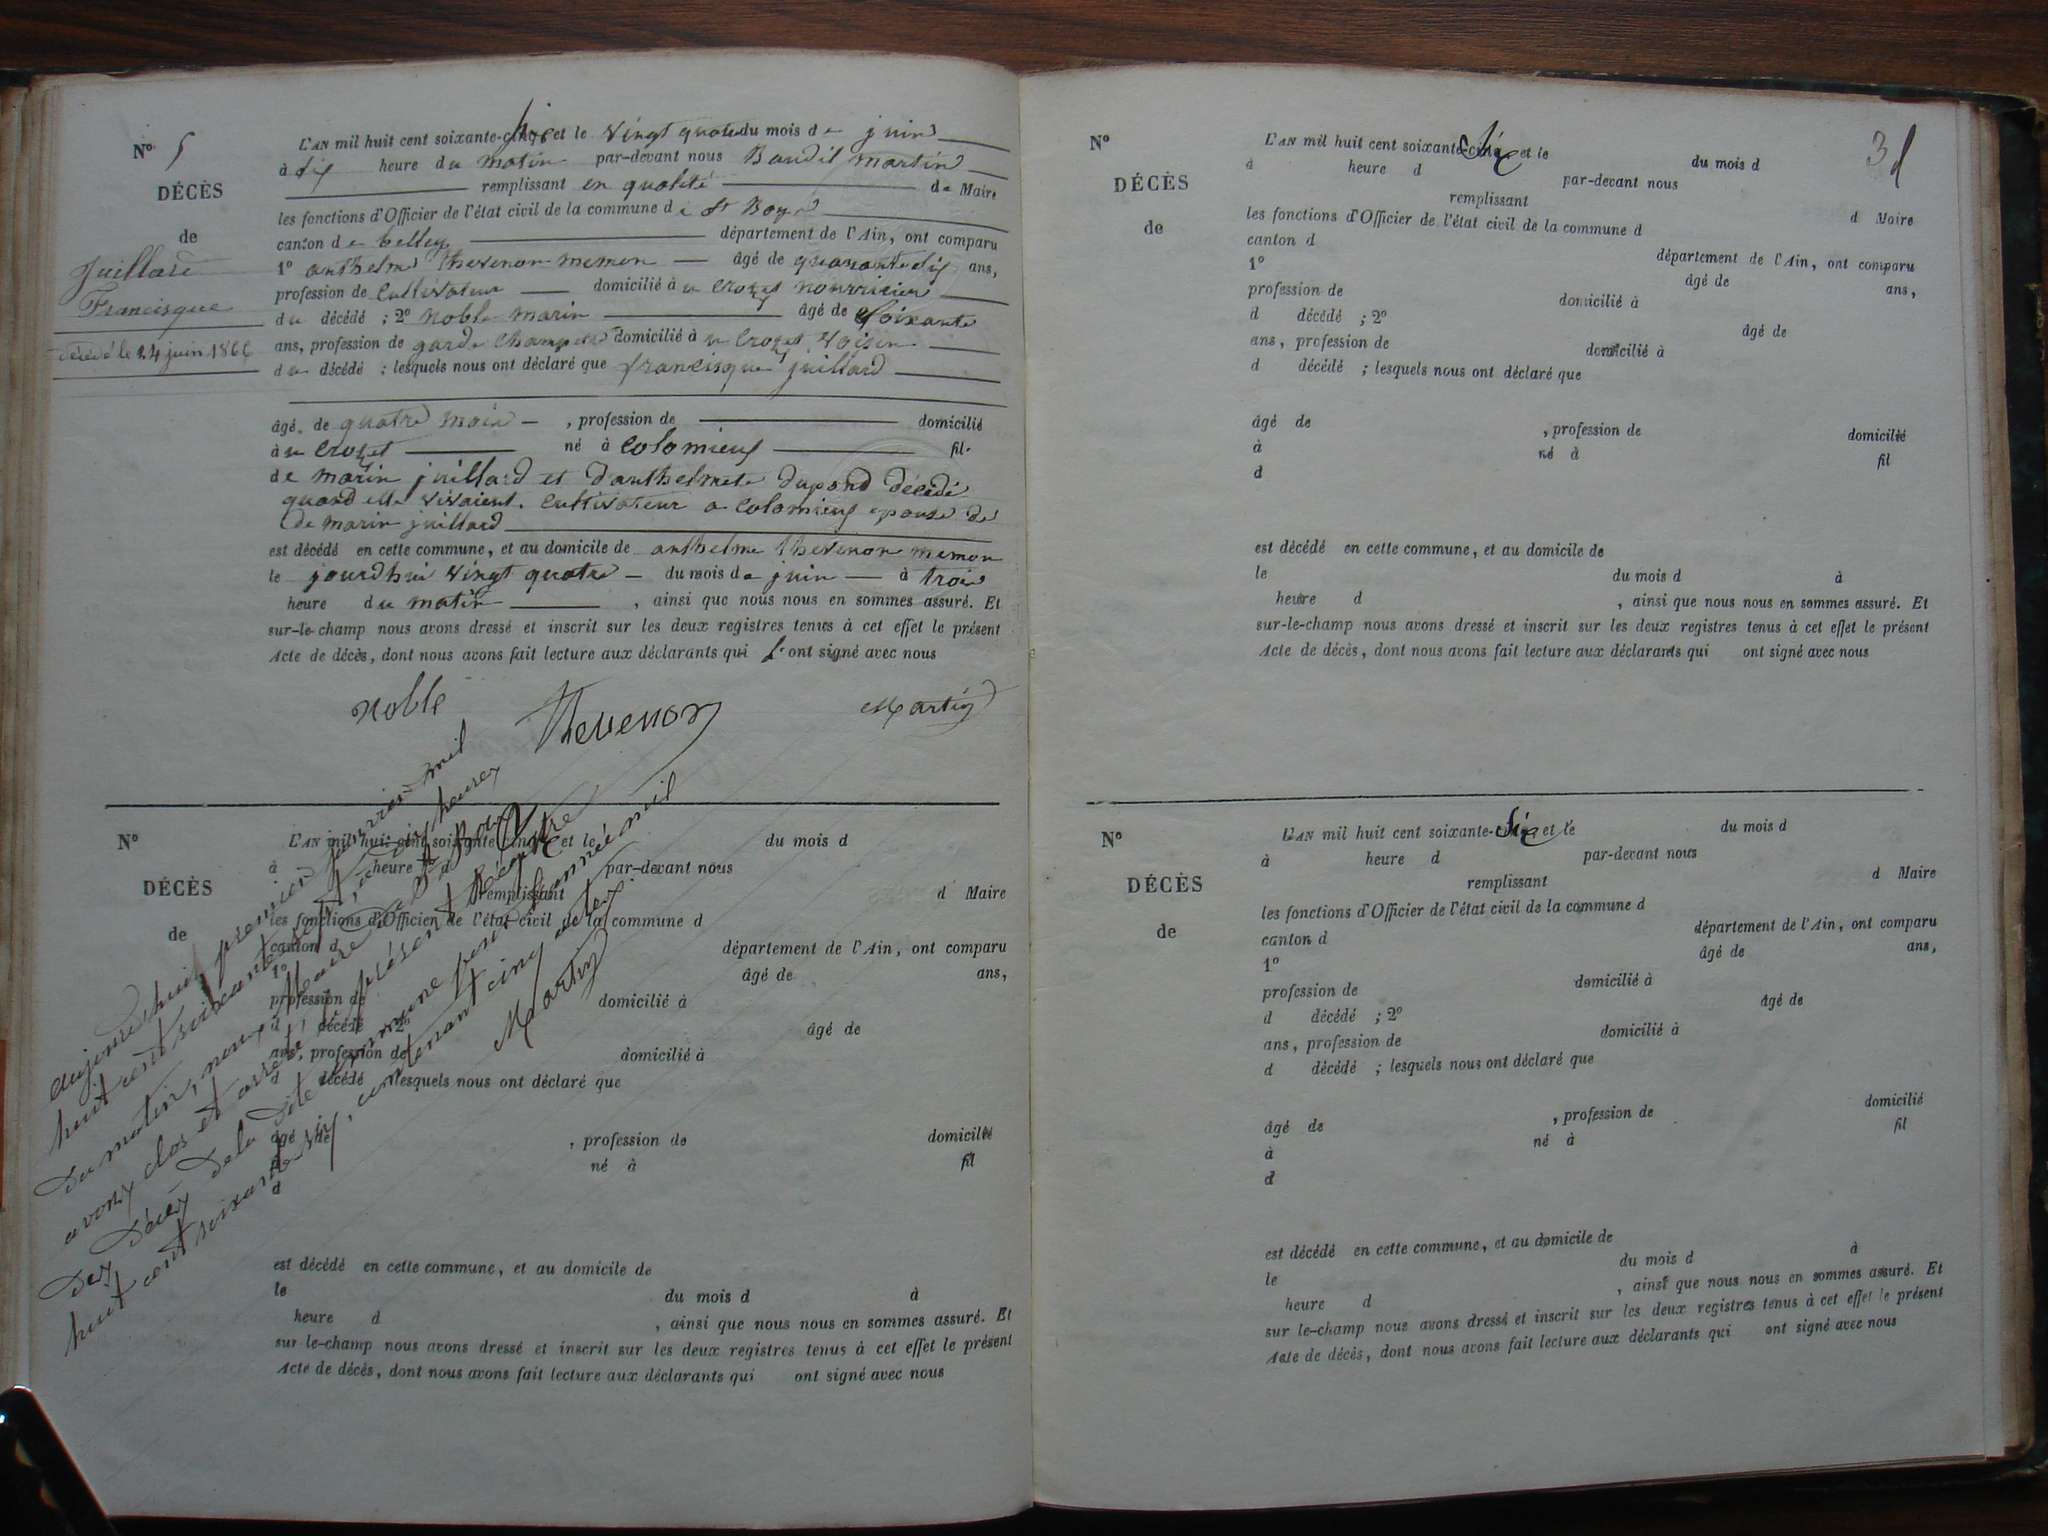 N° 5
DÉCÈS
de
Juillard
Francisque
décédé le 24 juin 1866
L'AN mil huit cent soixante-six et le vingt quatre du mois de juin
à dix heure du matin par-devant nous Baudit martin
remplissant en qualité de Maire
les fonctions d'Officier de l'état civil de la commune de St Boys
canton de belley département de l'Ain, ont comparu
1° anthelme thevenon-memon âgé de quarante dix ans,
profession de cultivateur domicilié à u crozet nourricier
du décédé ; 2° noble marin âgé de soixante
ans, profession de garde champetre domicilié à u crozet voisin
du décédé ; lesquels nous ont déclaré que francisque juillard
âgé de quatre mois , profession de domicilié
à u crozet né à colomieux fil
de marin juillard et d'anthelmete dupond décédé
quand elle vivaient. cultivateur a colomieux epouse de
de marin juillard
est décédé en cette commune, et au domicile de anthelme thevenon memon
le jourdhui vingt quatre du mois de juin à trois
heure du matin , ainsi que nous nous en sommes assuré. Et
sur-le-champ nous avons dressé et inscrit sur les deux registres tenus à cet effet le présent
Acte de décès, dont nous avons fait lecture aux déclarants qui ont signé avec nous
Noble Thevenon Martin
N°
DÉCÈS
de
L'AN mil huit cent soixante-cinq et le du mois d
à heure d par-devant nous
remplissant d Maire
les fonctions d'Officier de l'état civil de la commune d
canton d département de l'Ain, ont comparu
1° âgé de ans,
profession de domicilié à
d décédé ; 2° âgé de
ans, profession de domicilié à
d décédé ; lesquels nous ont déclaré que
âgé de , profession de domicilié
à né à fil
d
est décédé en cette commune, et au domicile de
le du mois d à
heure d , ainsi que nous nous en sommes assuré. Et
sur-le-champ nous avons dressé et inscrit sur les deux registres tenus à cet effet le présent
Acte de décès, dont nous avons fait lecture aux déclarants qui ont signé avec nous
aujourd'hui premier janvier mil
huit cent soixante sept, à dix heures
du matin, nous, Maire de St Boys
avons clos et arreté, le présent Régistre
des Décès de la dite commune pour l'année mil
huit cent soixante six, contenant cinq actes.
Martin
N°
DÉCÈS
de
3
L'AN mil huit cent soixante-six et le du mois d
à heure d par-devant nous
remplissant d Maire
les fonctions d'Officier de l'état civil de la commune d
canton d département de l'Ain, ont comparu
1° âgé de ans,
profession de domicilié à
d décédé ; 2° âgé de
ans, profession de domicilié à
d décédé ; lesquels nous ont déclaré que
âgé de , profession de domicilié
à né à fil
d
est décédé en cette commune, et au domicile de
le du mois d à
heure d , ainsi que nous nous en sommes assuré. Et
sur-le-champ nous avons dressé et inscrit sur les deux registres tenus à cet effet le présent
Acte de décès, dont nous avons fait lecture aux déclarants qui ont signé avec nous
N°
DÉCÈS
de
L'AN mil huit cent soixante-six et le du mois d
à heure d par-devant nous
remplissant d Maire
les fonctions d'Officier de l'état civil de la commune d
canton d département de l'Ain, ont comparu
1° âgé de ans,
profession de domicilié à
d décédé ; 2° âgé de
ans, profession de domicilié à
d décédé ; lesquels nous ont déclaré que
âgé de , profession de domicilié
à né à fil
d
est décédé en cette commune, et au domicile de
le du mois d à
heure d , ainsi que nous nous en sommes assuré. Et
sur le-champ nous avons dressé et inscrit sur les deux registres tenus à cet effet le présent
Acte de décès, dont nous avons fait lecture aux déclarants qui ont signé avec nous